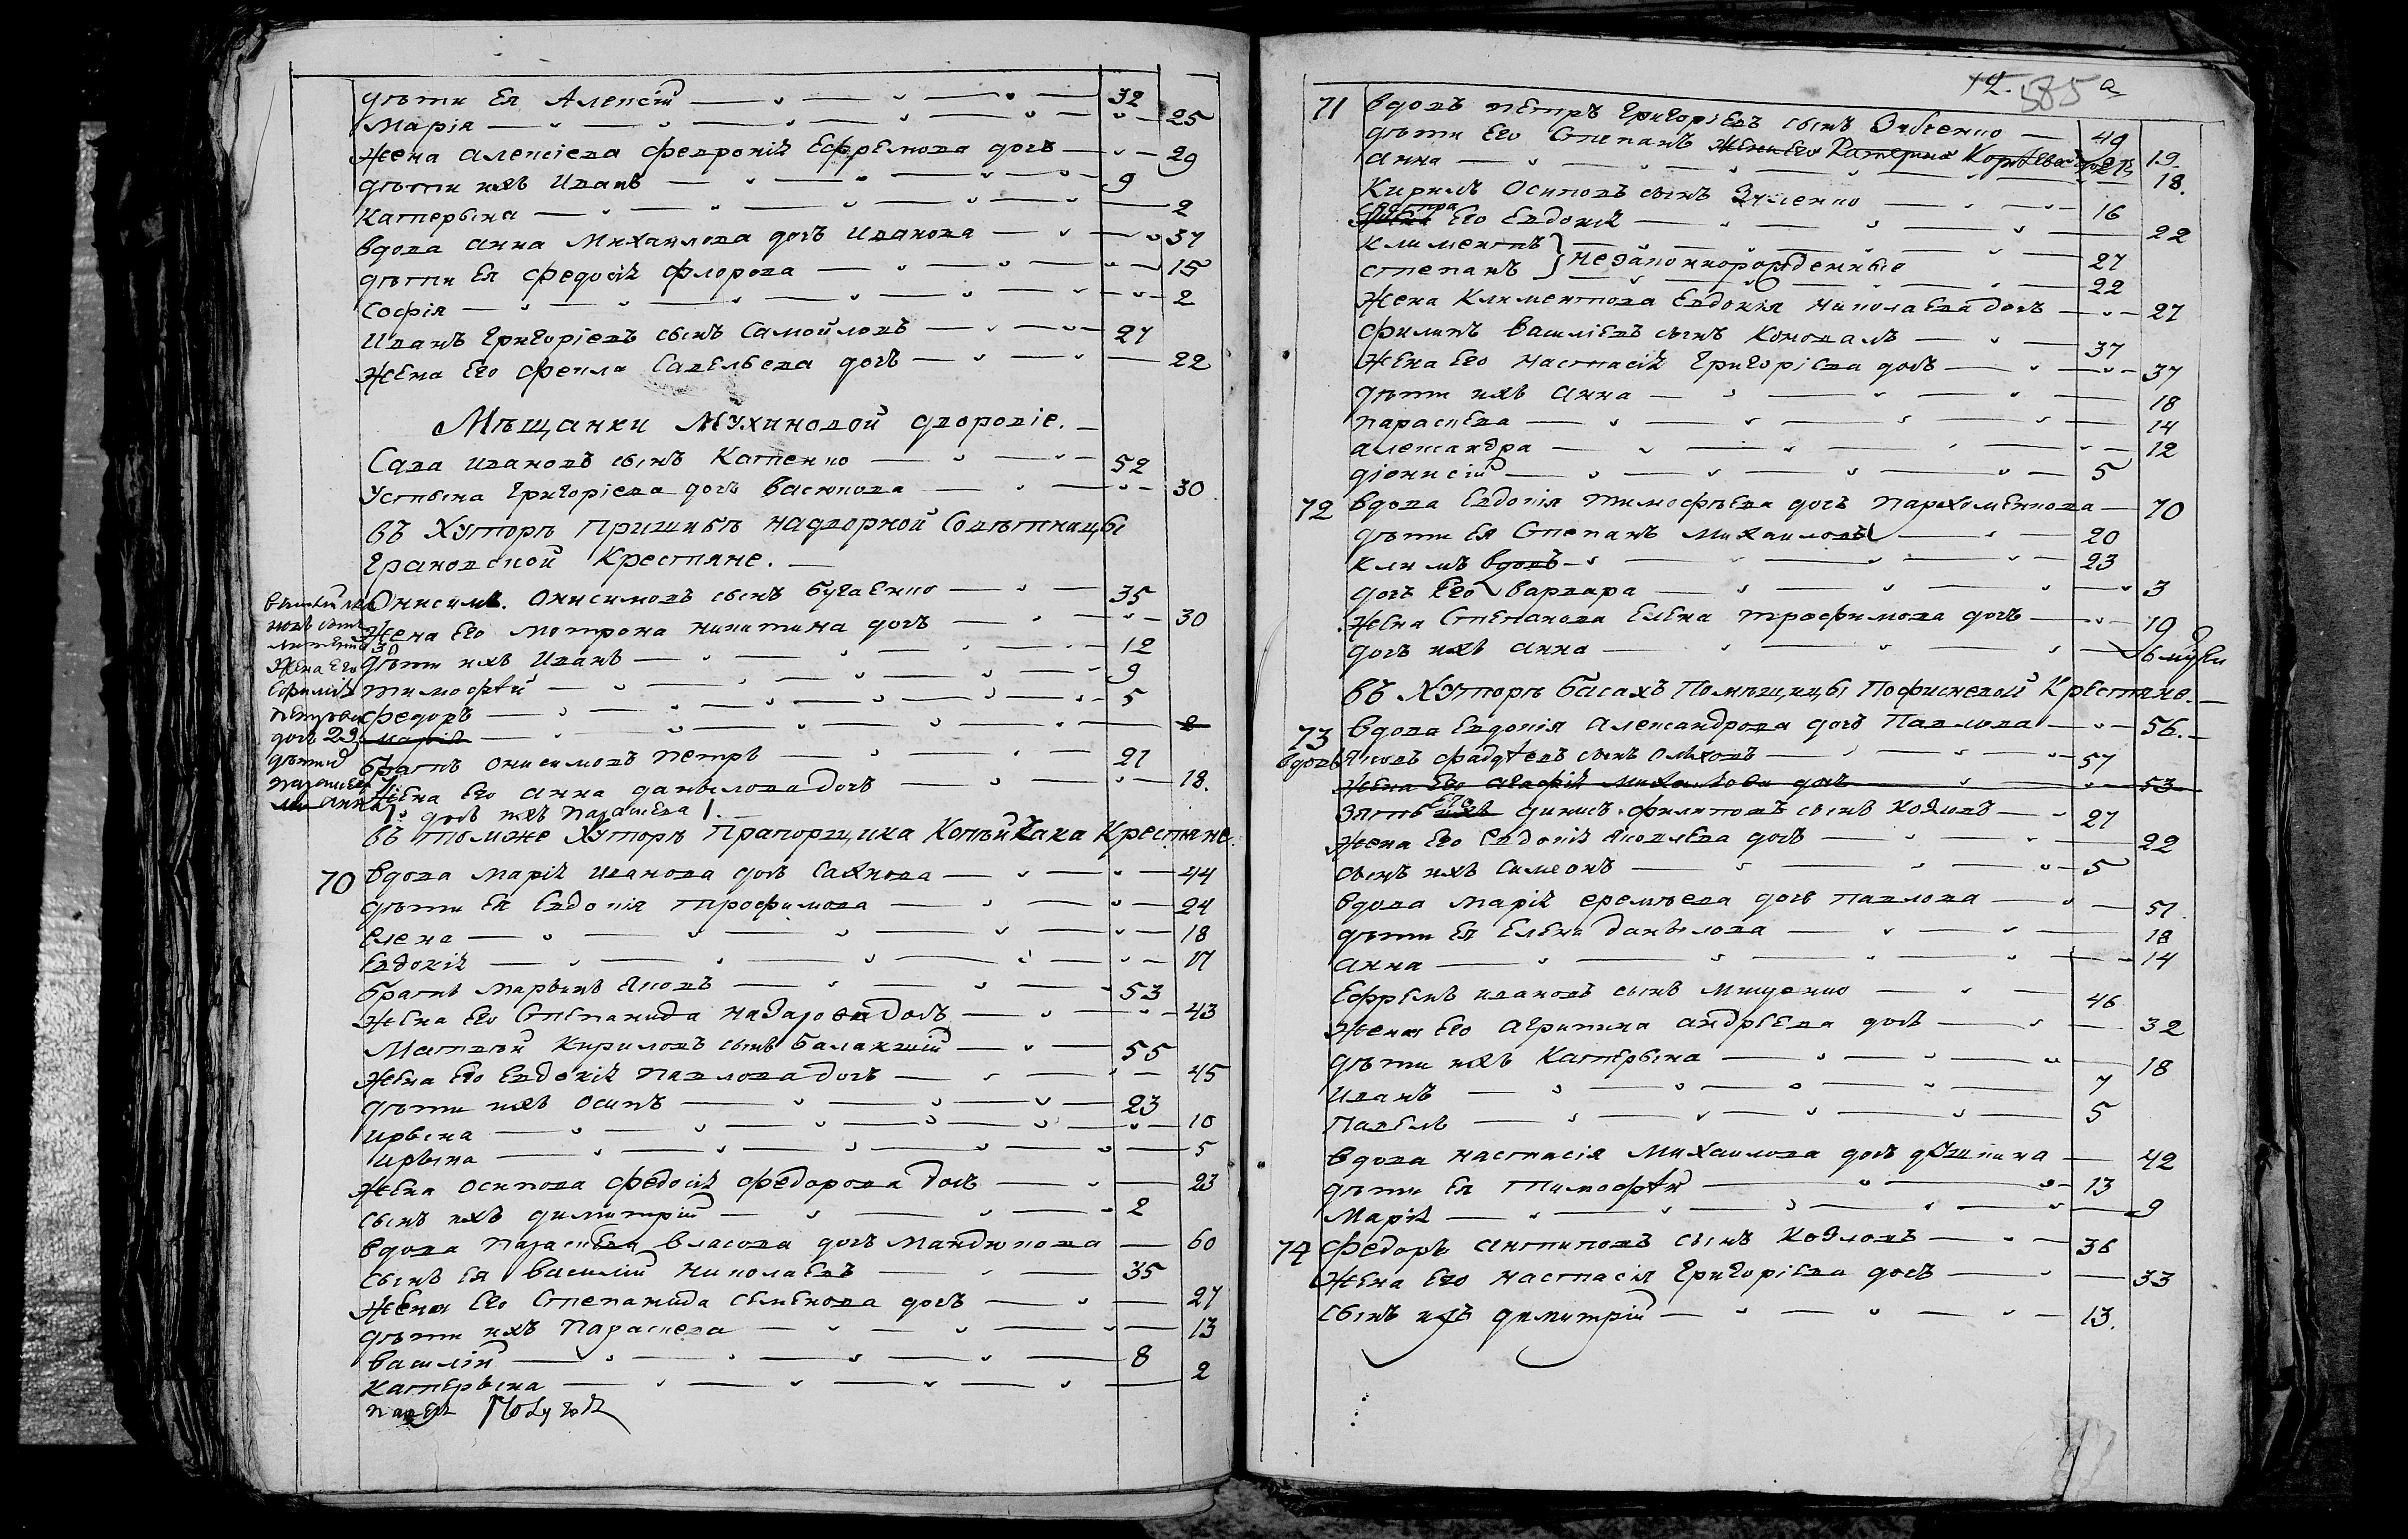 дѣти Ея Алексій 32
Марія 25
Жена Алексіева Февронія Ефремова дочь 29
дѣти ихъ Иванъ 9
Катерына 2
Вдова Анна Михаилова дочь Иванова 37
дѣти Ея Федосія Флорова 15
Софія 2
Иванъ Григоріевъ сынъ Самойловъ 27
Жена Его Фекла Савельева дочь 22
Мѣщанки Мухиновой дворовіе.
Сава Ивановъ сынъ Катенко 52
Устына Григоріева дочь Васюкова 30
Въ Хуторѣ Пришибѣ надворной Совѣтницы
Грановской Крестяне.
Онисимъ Онисимовъ сынъ Бугаенко 35
Жена Его Мотрона Никитина дочь 30
дѣти ихъ Иванъ 12
Тимофѣй 9
Федоръ 5
Марія 2
Братъ Онисимовъ Петръ 21
Жена Его Анна Данылова дочь 18.
дочь ихъ Параскева 1.
Жена Его
дочь 29
Въ томже Хуторѣ Прапорщика Копѣйчака Крестяне.
70 Вдова Марія Иванова дочь Сахнова 44
дѣти Ея Евдокія Трофимова 24
Елена 18
Евдокія 17
Братъ Марьинъ Яковъ 53
Жена Его Степанида Назарова дочь 43
Матвѣй Кириловъ сынъ Балакшій 55
Жена Его Евдокія Павлова дочь 45
дѣти ихъ Осипъ 23
Ирына 10
Ирына 5
Жена Осипова Федосія Федорова дочь 23
сынъ ихъ Димитрій 2
Вдова Параскева Власова дочь Мандюкова 60
Сынъ Ея Василій Николаевъ 35
Жена Его Степанида Семенова дочь 27
дѣти ихъ Параскева 13
Василій 8
Катерына 2
585 а
71 Вдовъ Петръ Григоріевъ сынъ Зиленко 49
дѣти Его Степанъ Жена Его Катерына 19
Анна 18.
Кирилъ Осиповъ сынъ Зиленко 16
сестра Его Евдокія 22
Климентъ } незаконнорожденные 27
Степанъ 22
Жена Климентова Евдокія Николаева дочь 27
Филипъ Василіевъ сынъ Коновалъ 37
Жена Его Настасія Григоріева дочь 37
дѣти ихъ Анна 18
Параскева 14
Александра 12
Діонисій 5
72 Вдова Евдокія Тимофѣева дочь Пархоменкова 70
дѣти Ея Степанъ Михаиловъ 20
Климъ вдовъ 23
дочь Его Варвара 3
Жена Степанова Елена Трофимова дочь 19
дочь ихъ Анна
Въ Хуторѣ Басахъ Помѣщицы Пофисневой Крестяне.
73 Вдова Евдокія Александрова дочь Павлова 56.
вдовъ Яковъ Фадѣевъ сынъ 57
Жена Его Агафія Михаилова дочь 53
Зять Его Динисъ Филиповъ сынъ Козловъ 27
Жена Его Евдокія Яковлева дочь 22
сынъ ихъ Симеонъ 5
Вдова Марія Еремѣева дочь Павлова 51
дѣти Ея Елена Данылова 18
Анна 14
Ефремъ Ивановъ сынъ Мищенко 46
Жена Его Агрипина Андреева дочь 32
дѣти ихъ Катерына 18
Иванъ 7
Павелъ 5
Вдова Настасія Михаилова дочь 42
дѣти Ея Тимофѣй 13
Марія 9
74 Федоръ Антиповъ сынъ Козловъ 36
Жена Его Настасія Григоріева дочь 33
Сынъ ихъ Димитрій 13.